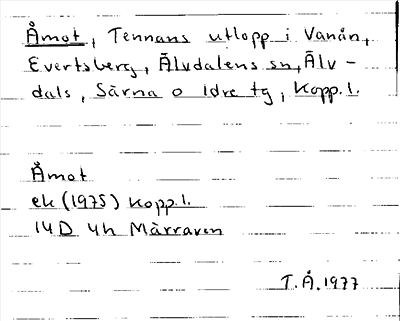 Åmot, Tennans utlopp i Vanån,
Evertsberg, Älvdalens sn, Älv-
dals, Särna o Idre tg, Kopp. l.
Åmot
ek (1975) Kopp. l.
14D 4h Mårraren
T. Å. 1977